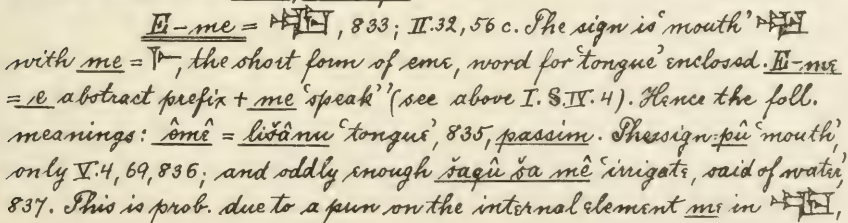 E-me = 𒅴, 833; II.32, 56 c. The sign is 'mouth' 𒅗
with me = 𒈨, the short form of eme, word for 'tongue' enclosed. E-me
= e abstract prefix + me 'speak' (see above I. §.IV. 4). Hence the foll.
meanings: êmê = lišânu 'tongue', 835, passim. The sign = pû 'mouth',
only V.4, 69, 836; and oddly enough šaqû ša mê 'irrigate, said of water,'
837. This is prob. due to a pun on the internal element me in 𒅴,